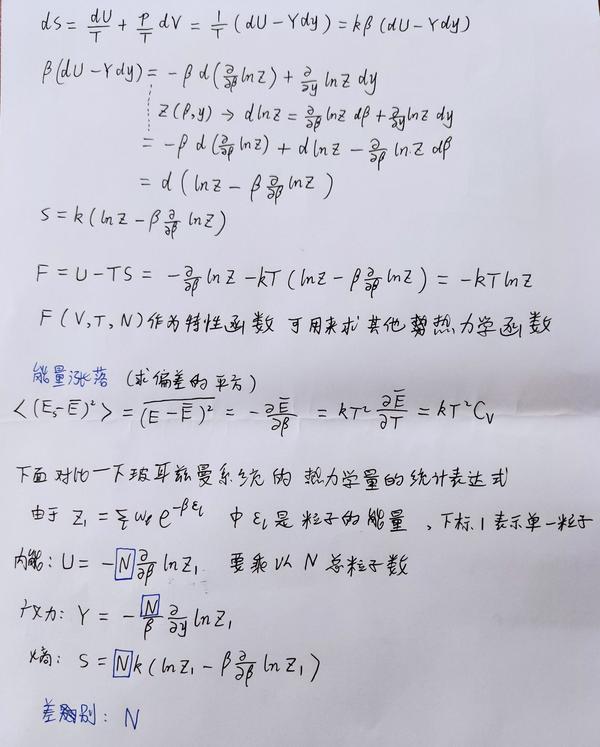 dS = dU/T + P/T dV = 1/T (dU - Ydy) = kβ (dU - Ydy)
β(dU - Ydy) = -β d(∂/∂β lnZ) + ∂/∂y lnZ dy
Z(β,y) → dlnZ = ∂/∂β lnZ dβ + ∂/∂y lnZ dy
= -β d(∂/∂β lnZ) + dlnZ - ∂/∂β lnZ dβ
= d(lnZ - β ∂/∂β lnZ)
S = k(lnZ - β ∂/∂β lnZ)
F = U - TS = -∂/∂β lnZ - kT(lnZ - β ∂/∂β lnZ) = -kTlnZ
F(V,T,N)作为特性函数 可用来求其他热力学函数
能量涨落 (求偏差的平方)
<(Es-Ē)²> = \overline{(E-Ē)²} = -∂Ē/∂β = kT² ∂Ē/∂T = kT²Cv
下面对比一下玻耳兹曼系统的热力学量的统计表达式
由于 Z₁ = Σ ωₗ e^{-βεₗ} 中 εₗ是粒子的能量, 下标1表示单一粒子
内能: U = -N ∂/∂β lnZ₁ 要乘以N总粒子数
广义力: Y = -N/β ∂/∂y lnZ₁
熵: S = Nk(lnZ₁ - β ∂/∂β lnZ₁)
差别: N